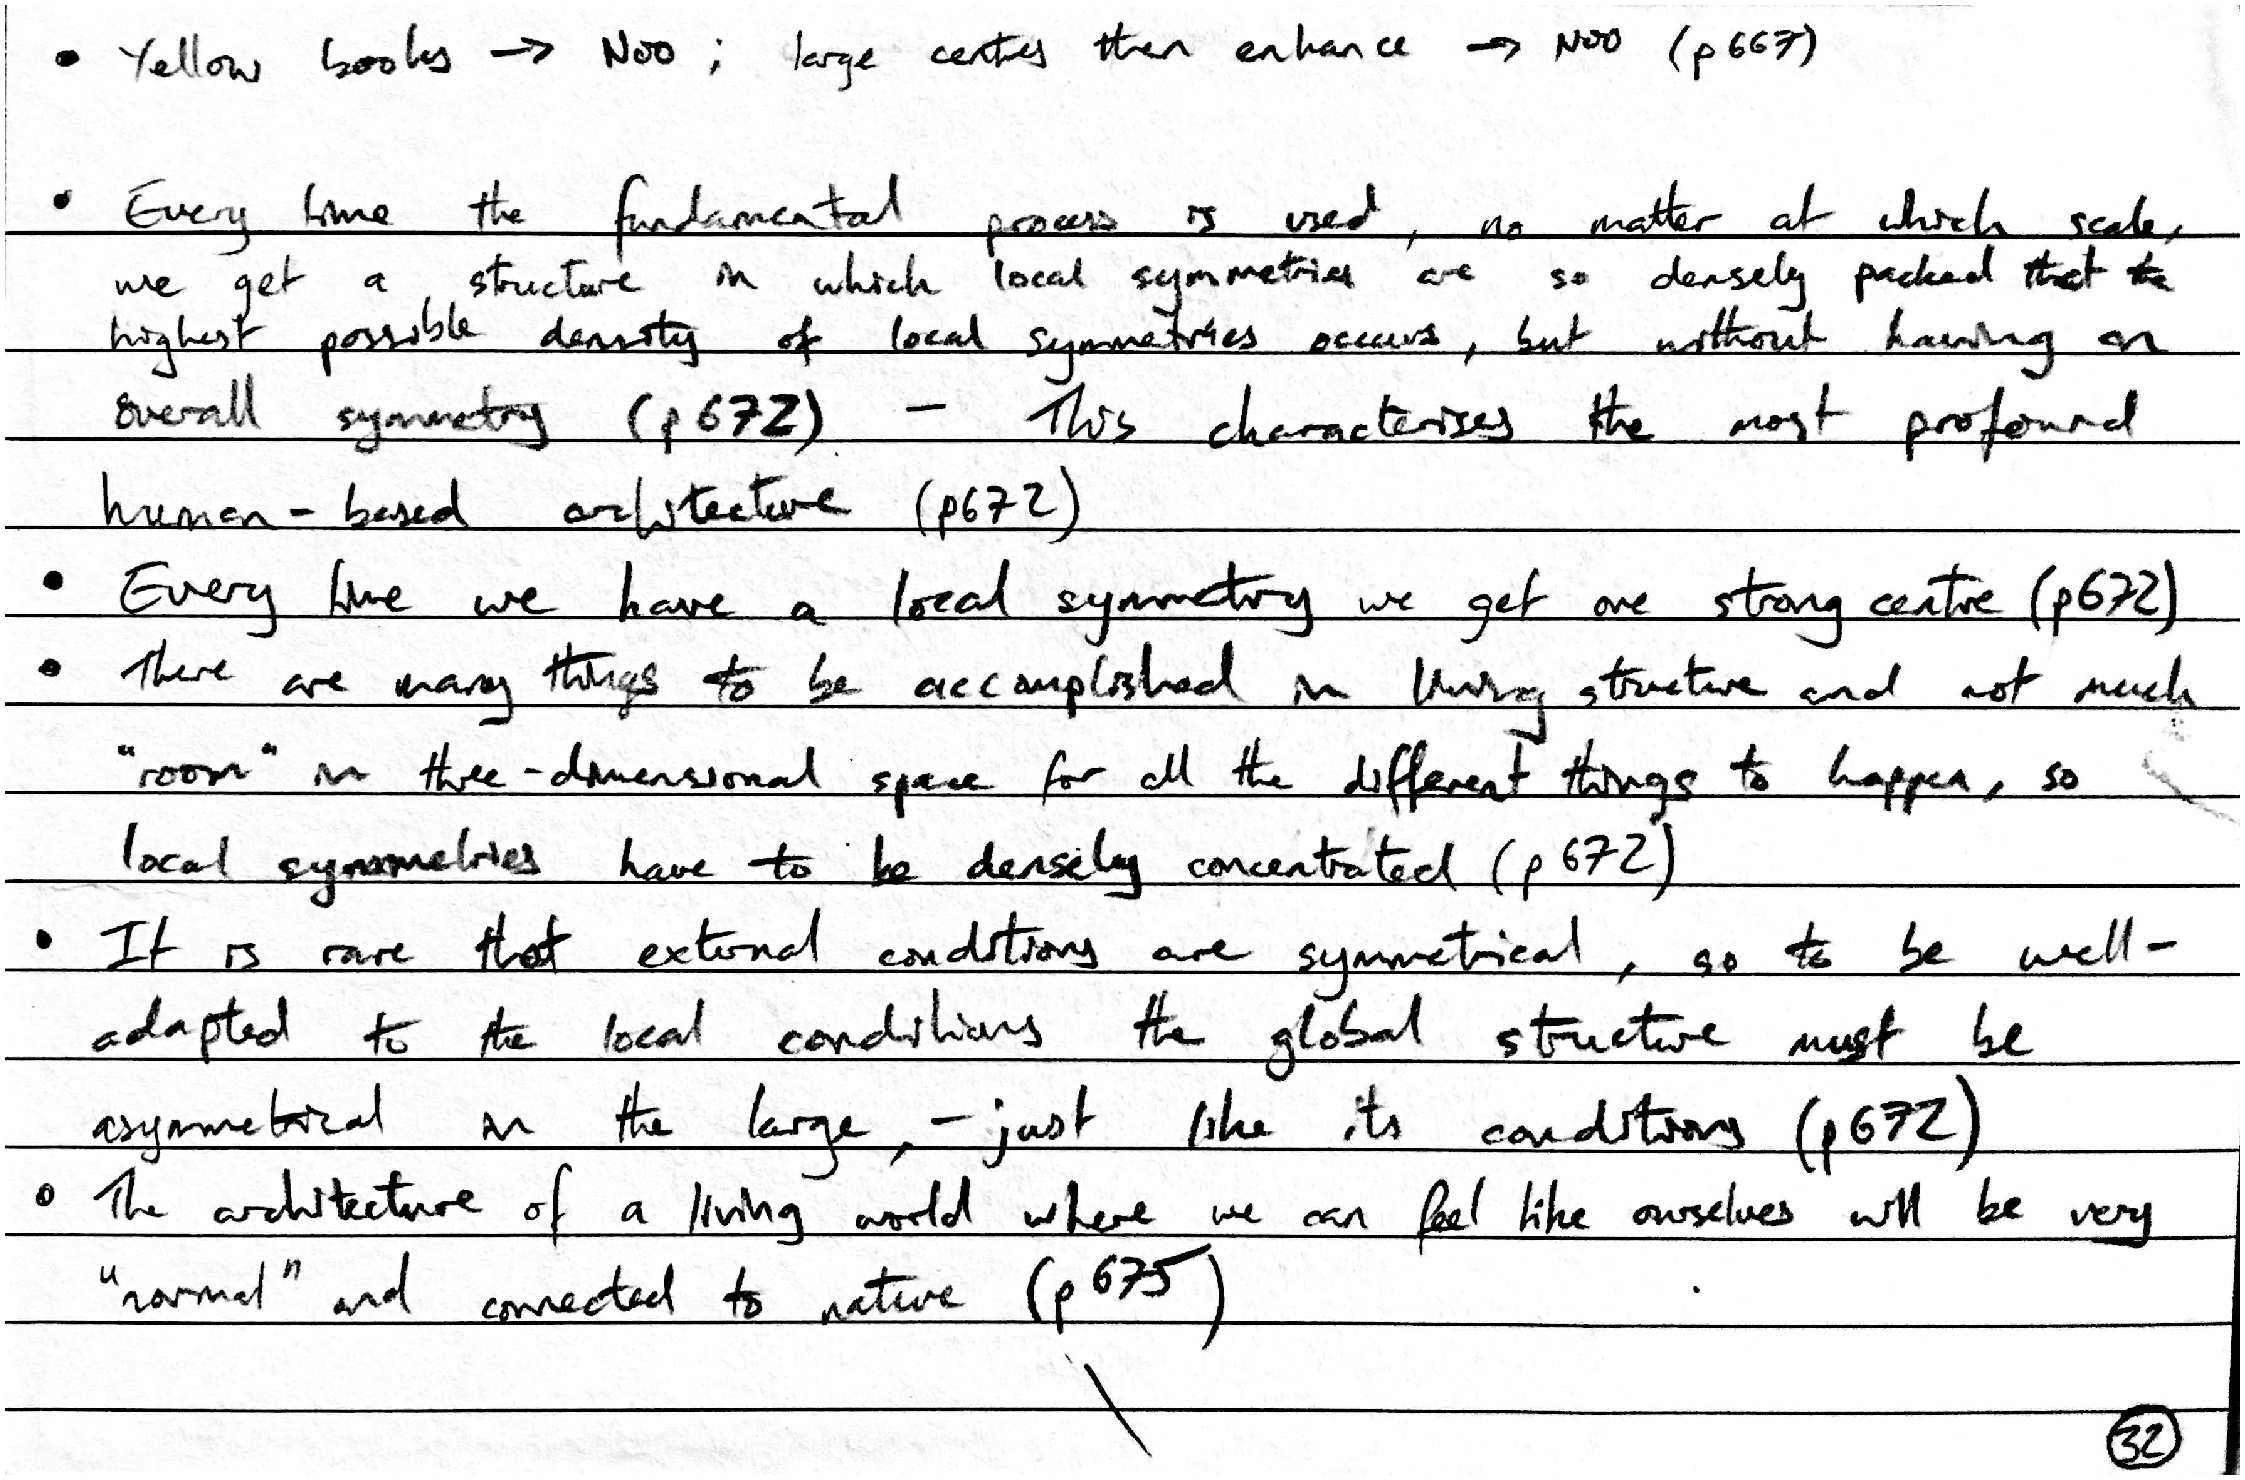 • Yellow books → Noo ; large centres then enhance → Noo (p667)
• Every time the fundamental process is used, no matter at which scale,
we get a structure in which local symmetries are so densely packed that the
highest possible density of local symmetries occurs, but without having an
overall symmetry (p672) – This characterises the most profound
human-based architecture (p672)
• Every time we have a local symmetry we get one strong centre (p672)
• There are many things to be accomplished in living structure and not much
"room" in three-dimensional space for all the different things to happen, so
local symmetries have to be densely concentrated (p672)
• It is rare that external conditions are symmetrical, so to be well-
adapted to the local conditions the global structure must be
asymmetrical in the large, – just like its conditions (p672)
• The architecture of a living world where we can feel like ourselves will be very
"normal" and connected to nature (p675)
32